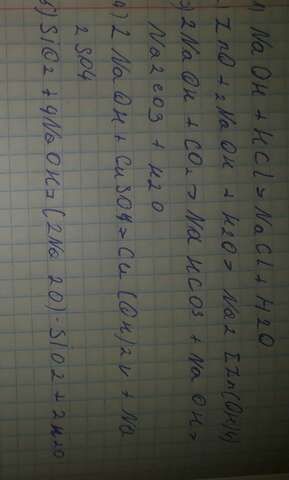 1) NaOH + HCl > NaCl + H2O
ZnO + 2NaOH + H2O > Na2 [Zn(OH)4
3) 2NaOH + CO2 > NaHCO3 + NaOH >
Na2CO3 + H2O
4) 2 NaOH + CuSO4 > Cu(OH)2v + Na
2SO4
5) SiO2 + 4NaOH > (2Na2O)·SiO2 + 2H2O